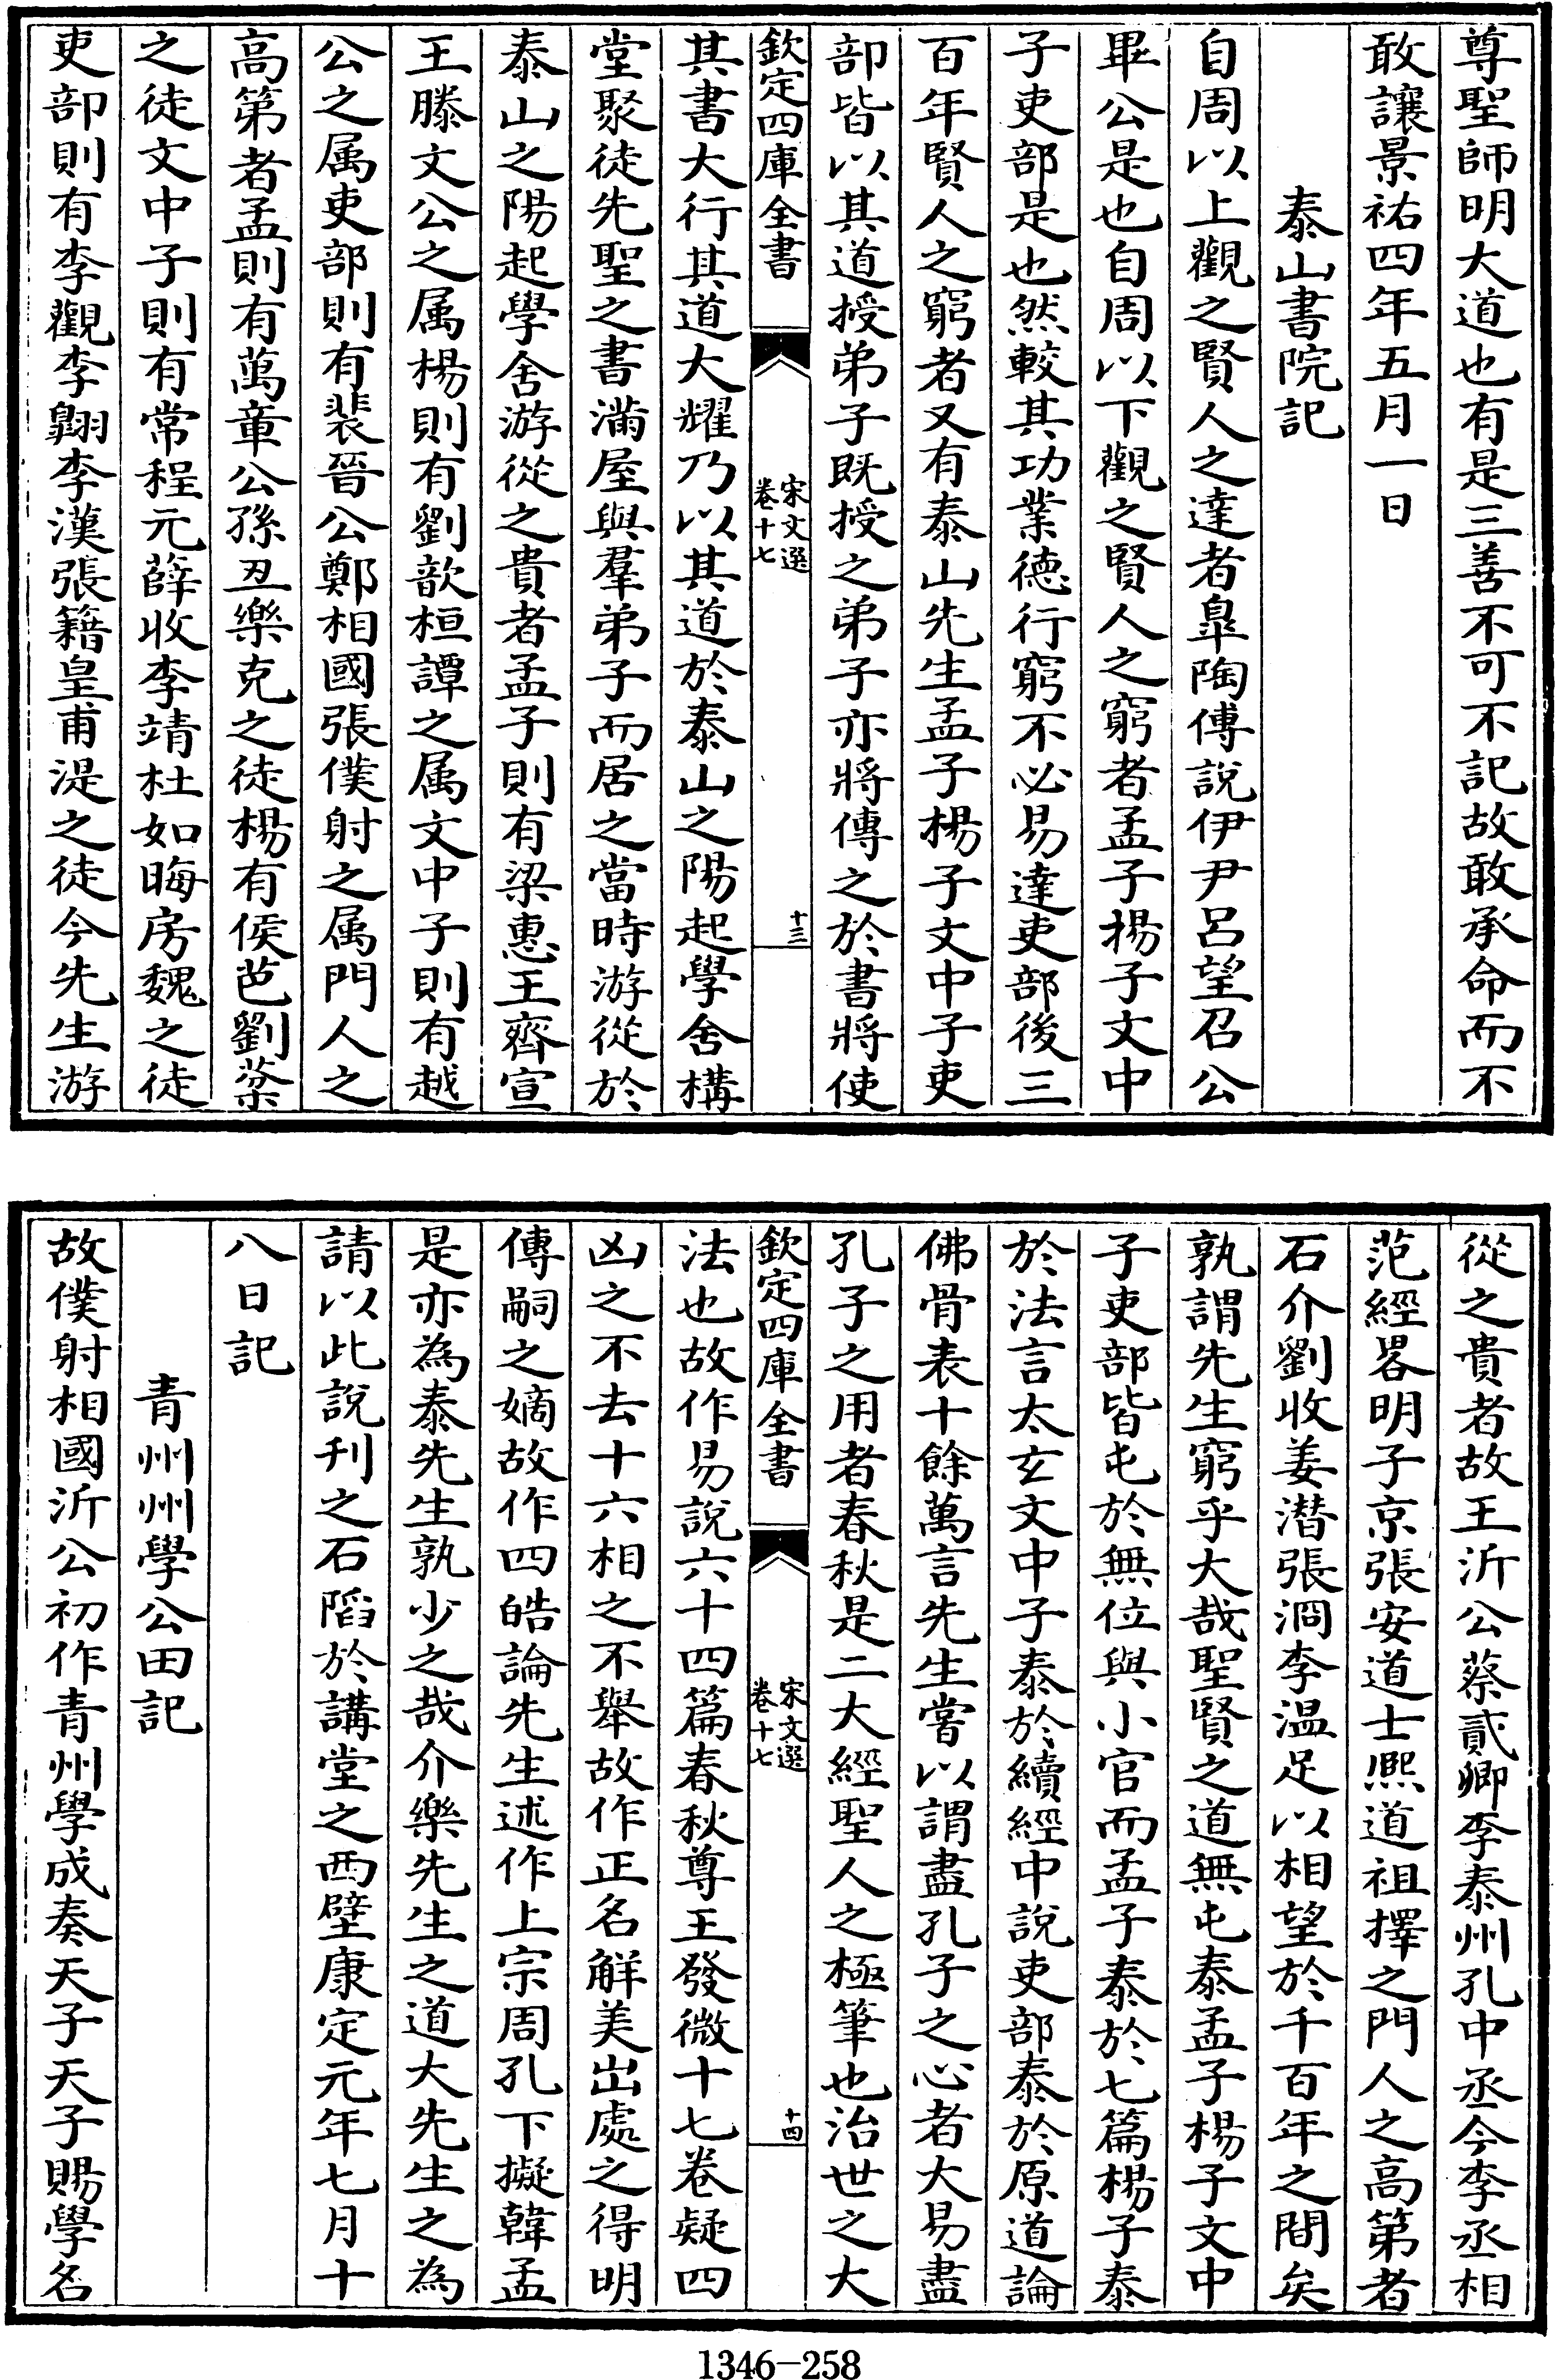 尊聖師明大道也有是三善不可不記故敢承命而不
敢讓景祐四年五月一日
泰山書院記
自周以上觀之賢人之達者臯陶傅說伊尹呂望召公
畢公是也自周以下觀之賢人之窮者孟子楊子文中
子吏部是也然較其功業德行窮不必易達吏部後三
百年賢人之窮者又有泰山先生孟子楊子文中子吏
部皆以其道授弟子既授之弟子亦將傳之於書將使
欽定四庫全書
宋文選
卷十七
十三
其書大行其道大耀乃以其道於泰山之陽起學舍構
堂聚徒先聖之書滿屋與羣弟子而居之當時游從於
泰山之陽起學舍游從之貴者孟子則有梁惠王齊宣
王滕文公之属楊則有劉歆桓譚之属文中子則有越
公之属吏部則有裴晉公鄭相國張僕射之属門人之
高第者孟則有萬章公孫丑樂克之徒楊有侯芭劉棻
之徒文中子則有常程元薛收李靖杜如晦房魏之徒
吏部則有李觀李翺李漢張籍皇甫湜之徒今先生游
從之貴者故王沂公蔡貳卿李泰州孔中丞今李丞相
范經畧明子京張安道士熙道祖擇之門人之高第者
石介劉收姜潛張泂李温足以相望於千百年之間矣
孰謂先生窮乎大哉聖賢之道無屯泰孟子楊子文中
子吏部皆屯於無位與小官而孟子泰於七篇楊子泰
於法言太玄文中子泰於續經中說吏部泰於原道論
佛骨表十餘萬言先生嘗以謂盡孔子之心者大易盡
孔子之用者春秋是二大經聖人之極筆也治世之大
欽定四庫全書
宋文選
卷十七
十四
法也故作易說六十四篇春秋尊王發微十七卷疑四
凶之不去十六相之不舉故作正名解美出處之得明
傳嗣之嫡故作四皓論先生述作上宗周孔下擬韓孟
是亦為泰先生孰少之哉介樂先生之道大先生之為
請以此說刋之石陷於講堂之西壁康定元年七月十
八日記
青州州學公田記
故僕射相國沂公初作青州學成奏天子天子賜學名
1346-258